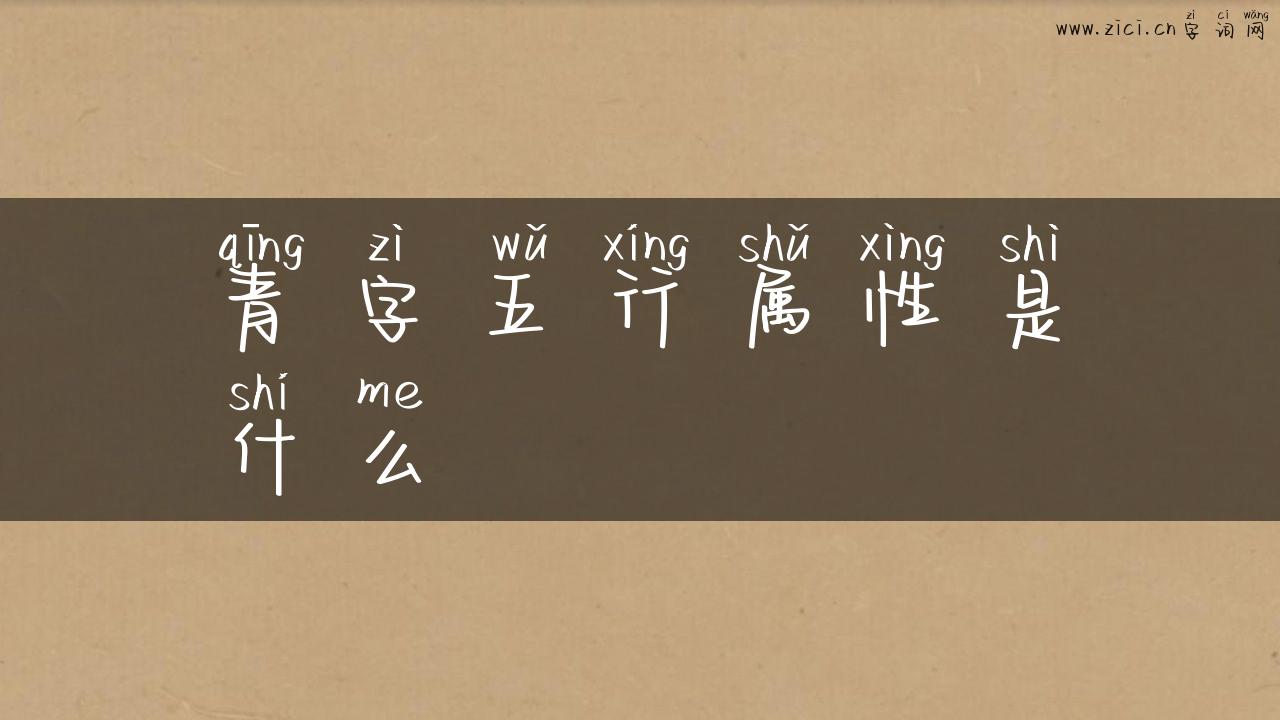 www.zici.cn
zì cí wǎng
字词网
qīng zì wǔ xíng shǔ xìng shì
青字五行属性是
shí me
什么